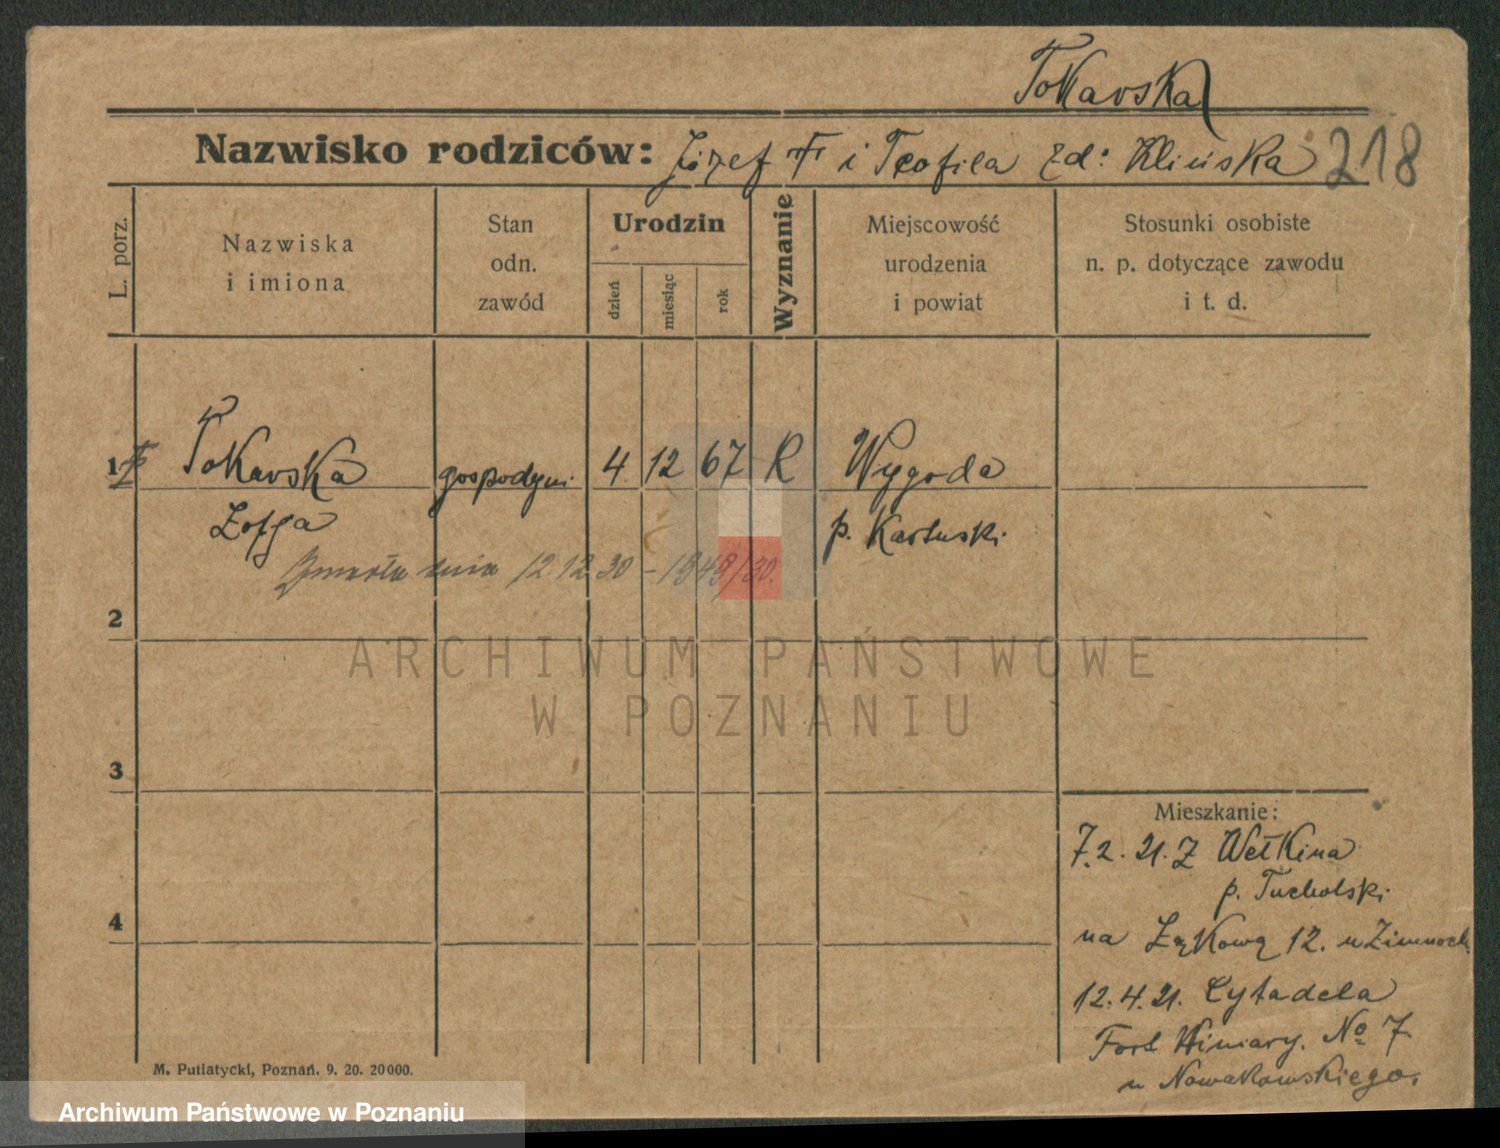 Tokarska
Nazwisko rodziców: Józef i Teofila zd: Klińska 218
L. porz.
Nazwiska
i imiona
Stan
odn.
zawód
Urodzin
dzień
miesiąc
rok
Wyznanie
Miejscowość
urodzenia
i powiat
Stosunki osobiste
n. p. dotyczące zawodu
i t. d.
1 Tokarska gospodyni 4 12 67 R Wygoda
Zofja p. Kartuski
Zmarła dnia 12.12.30 - 1949/30.
2
ARCHIWUM PAŃSTWOWE
W POZNANIU
3
Mieszkanie:
7.2.21. Z Wełkina
p. Tucholski
4
na Łąkową 12. u Zimnoch
12.4.21. Cytadela
Fort Winiary. No 7.
u Nowakowskiego.
M. Putiatycki, Poznań. 9. 20. 20000.
Archiwum Państwowe w Poznaniu